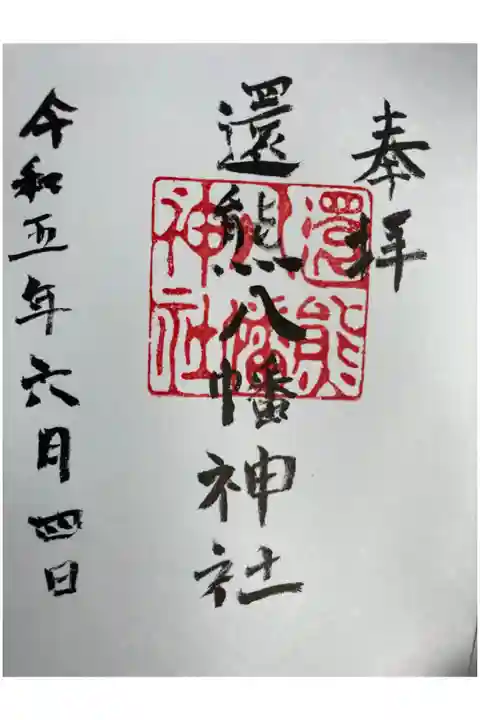 奉拝
還熊八幡神社
還熊
八幡
神社
令和五年六月四日